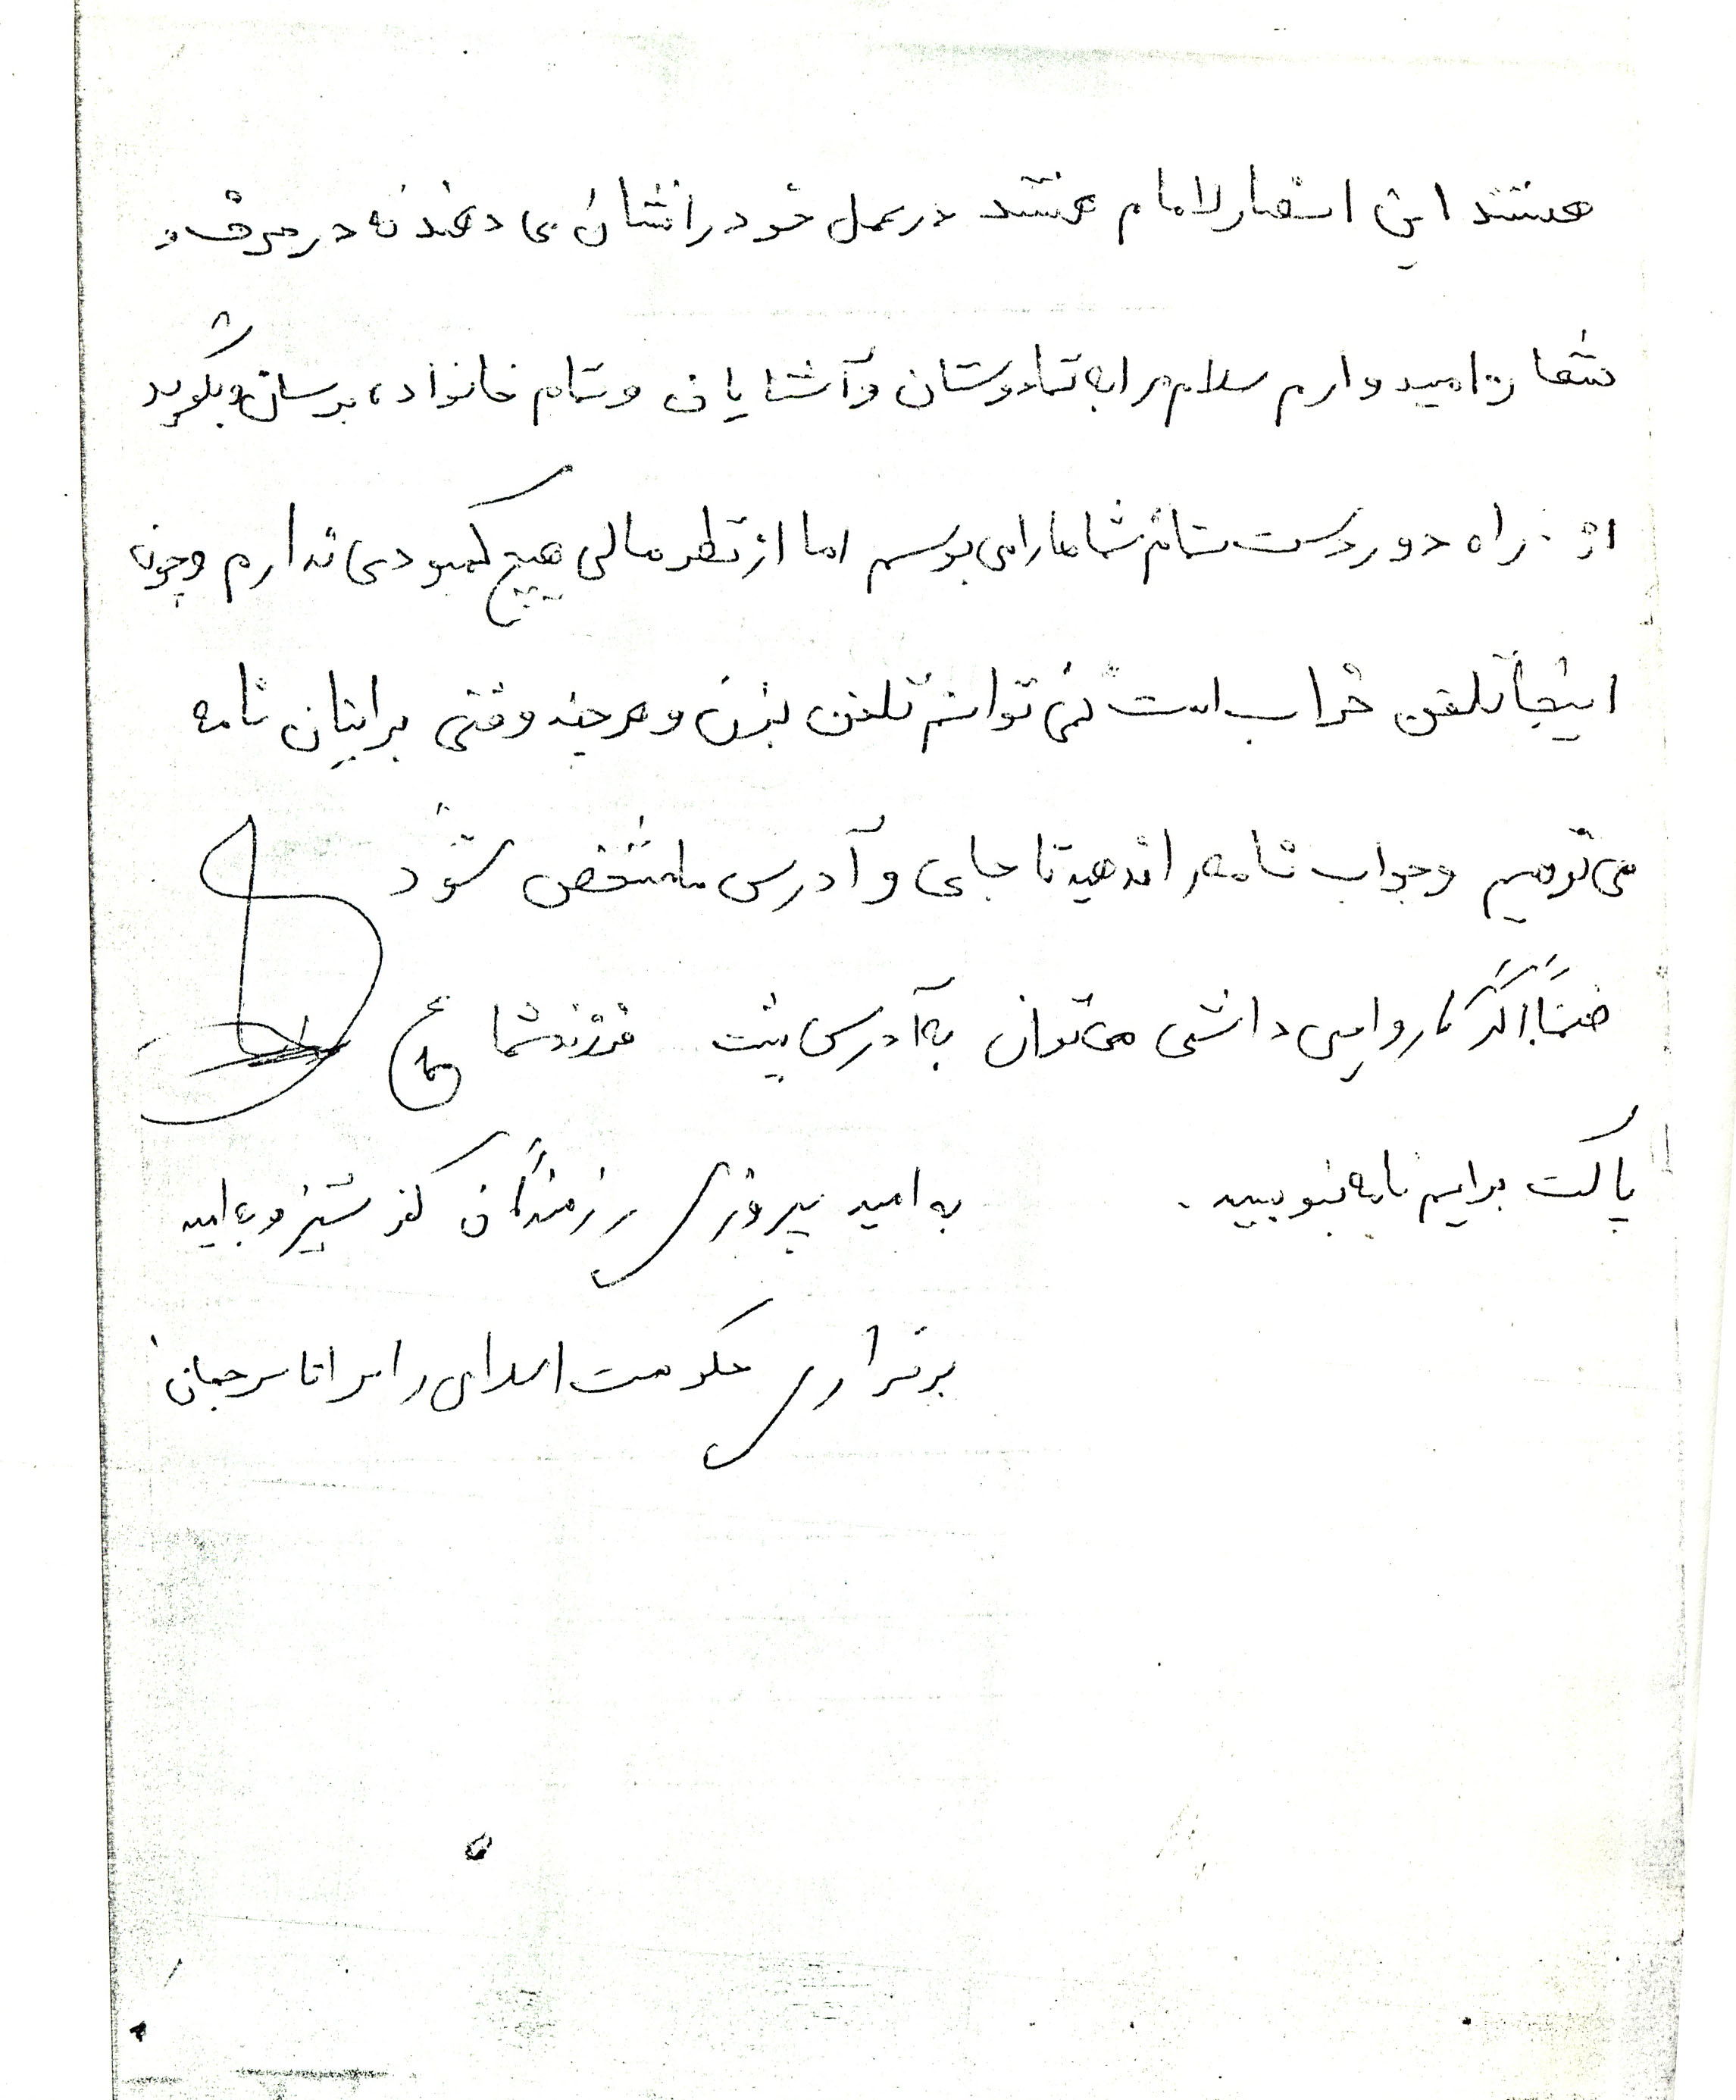 هستند این انصار الامام هستند در عمل خود را نشان می دهند نه در حرف و
شما و امیدوارم سلام مرا به تمام دوستان و آشنایان و تمام خانواده برسان و بگوید
از راه دور دست تمام شماها را می بوسم اما از نظر مالی هیچ کمبودی ندارم و چون
اینجا تلفن خراب است نمی توانم تلفن بزن و هر چند وقتی برایتان نامه
می نویسم و جواب نامه را ندهید تا جای و آدرس ما مشخص شود
ضمناً اگر کار واجبی داشتی می توان به آدرس پشت فرزند شما
پاکت برایم نامه بنویسید. به امید پیروزی رزمندگان کفر ستیز و به امید
برقراری حکومت اسلامی در سراسر جهان